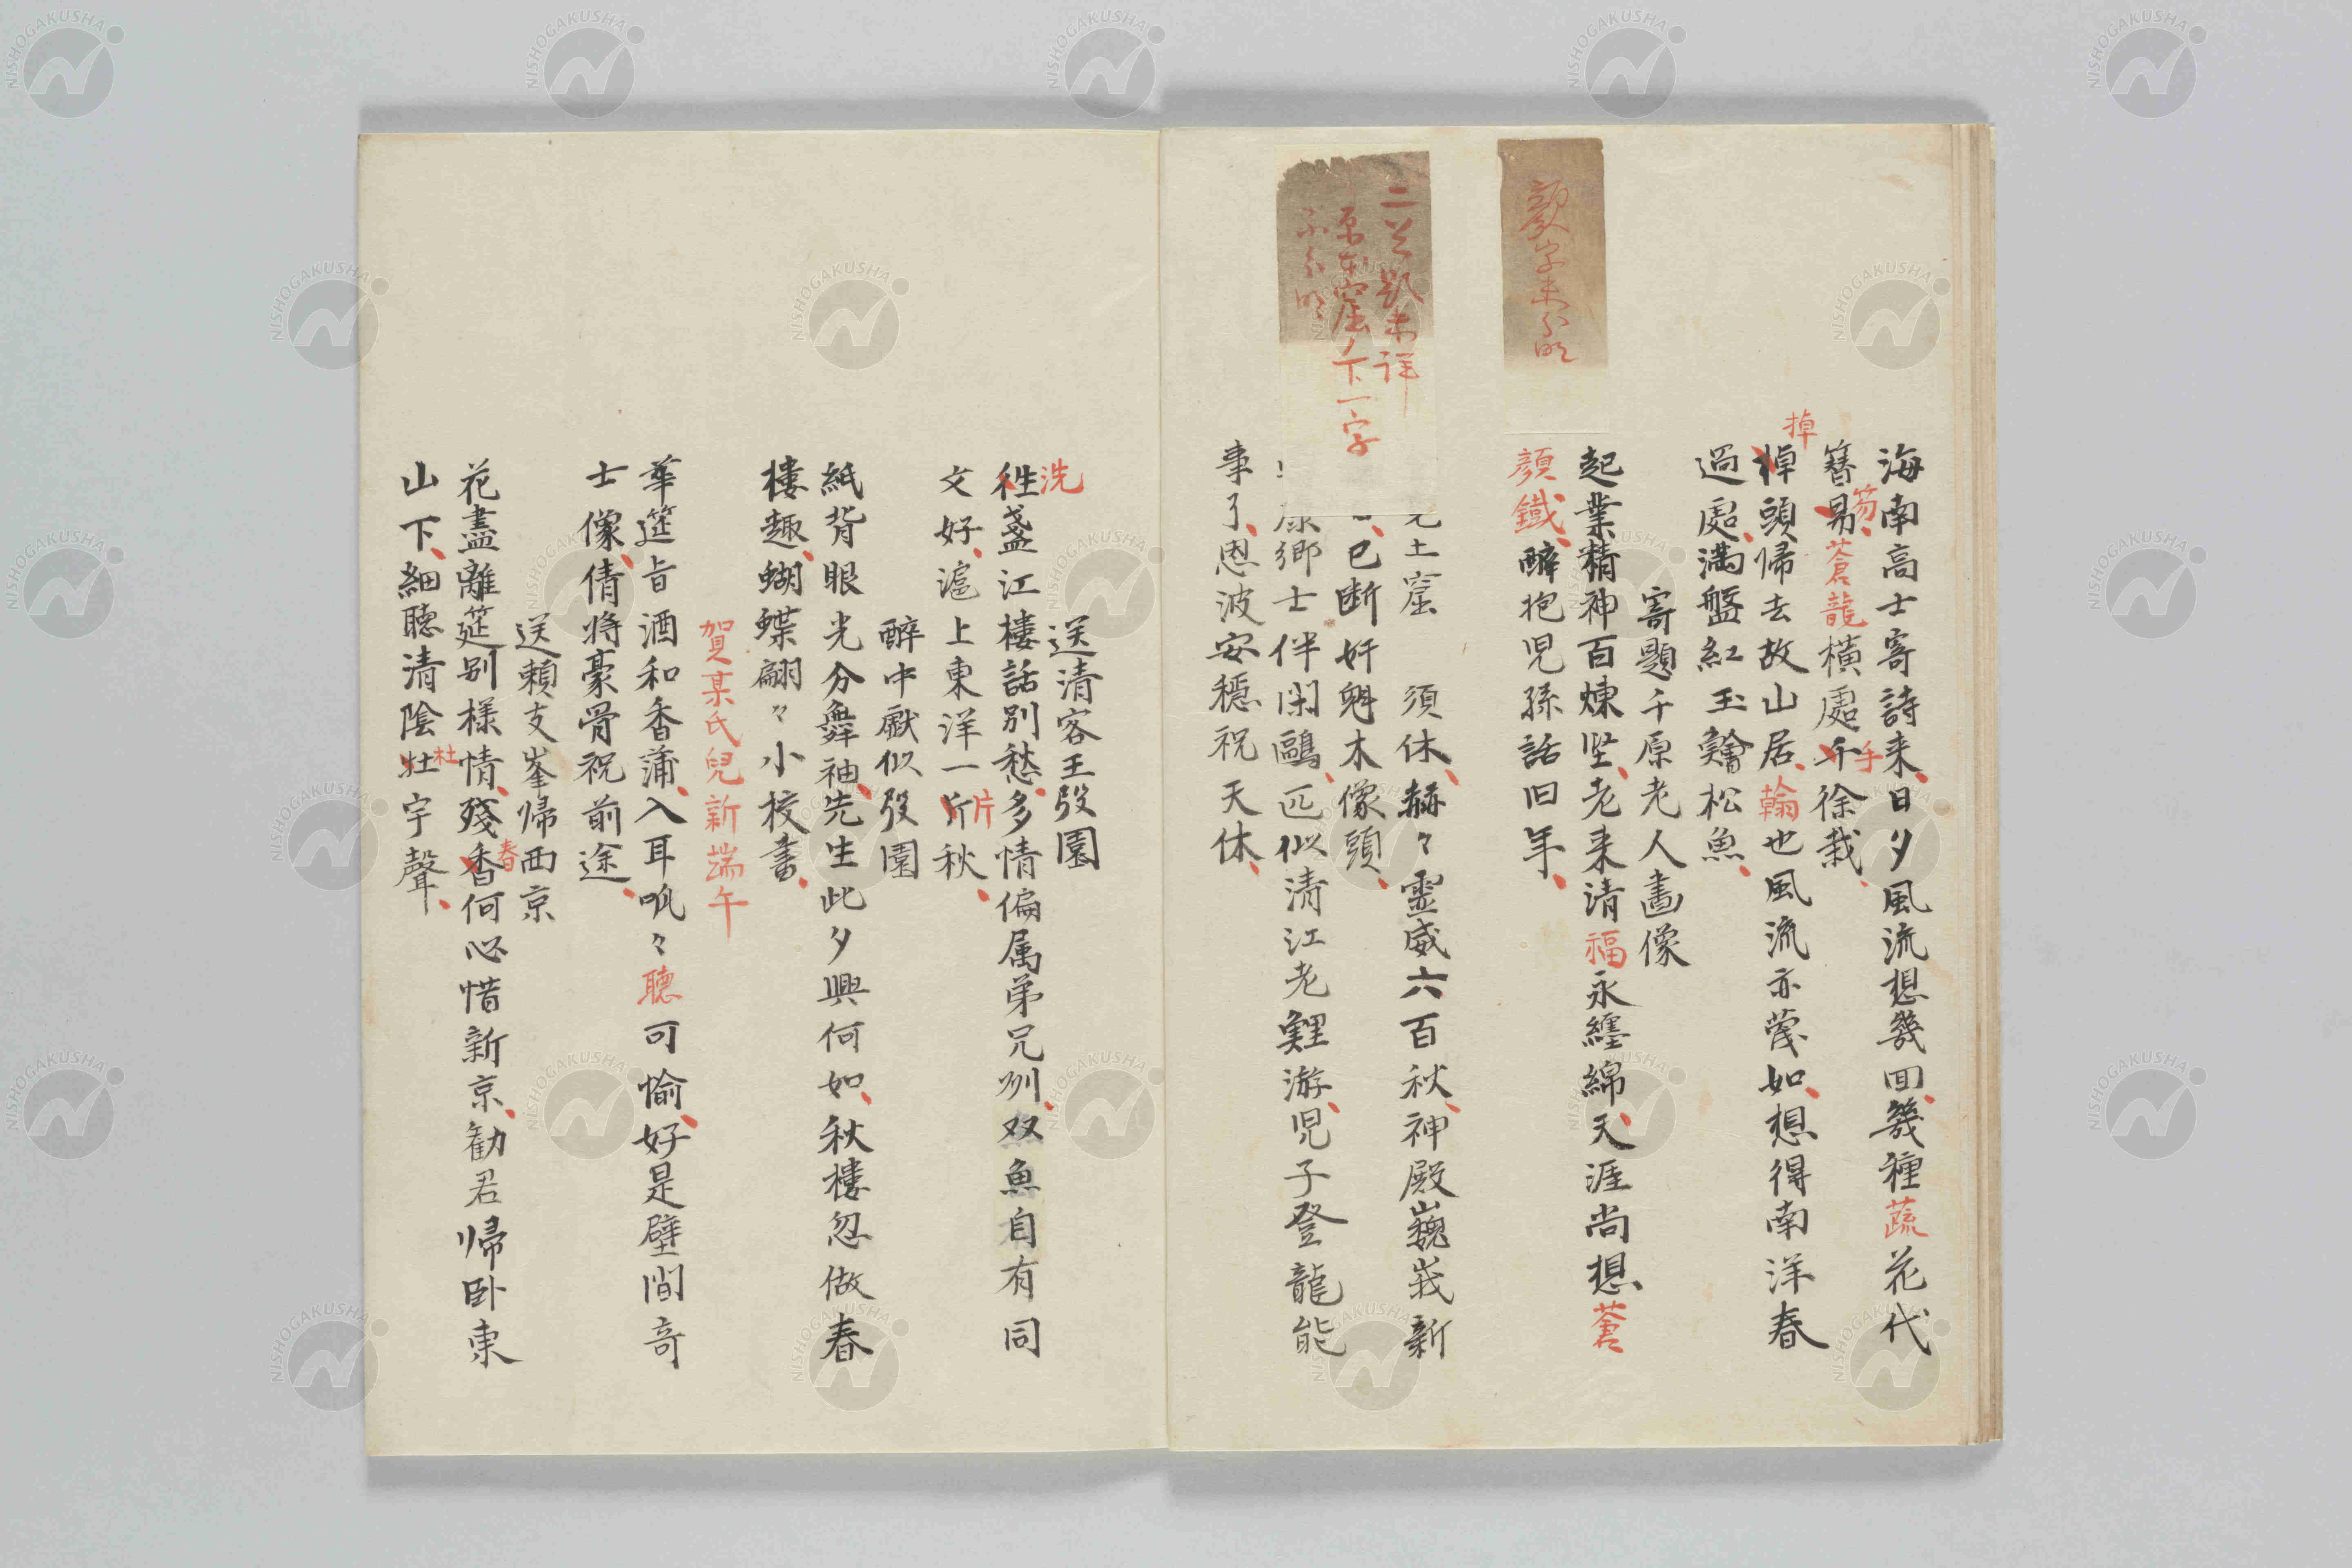 海南高士寄詩来日夕風流想幾回幾種蔬花代
簪昜蒼龍横處千徐栽
笏
手
棹頭帰去故山居翰也風流亦蔑如想得南洋春
掉
過處満盤紅玉鱠松魚
寄題千原老人畵像
起業精神百煉坚老来清福永纏綿天涯尚想蒼
顔鐵醉抱児孫話旧年
顔字未分明
二首題未詳
原本窟下一字
不分明
土窟 須休赫々靈威六百秋神殿巍峩新
已断奸魁木像頭
鄉士伴閑鷗匹似清江老鯉游児子登龍能
事了恩波安穏祝天休
送清客王弢園
洗
徃盞江樓話別愁多情偏属弟兄洲双魚自有同
文好滬上東洋一斤秋
片
醉中戯似弢園
紙背眼光分舞袖先生此夕興何如秋樓忽做春
樓趣蝴蝶翩々小校書
賀某氏兒新端午
華筵旨酒和香蒲入耳呱々聴可愉好是壁間奇
士像倩将豪骨祝前途
送頼支峯帰西京
花盡離筵别様情殘香何必惜新京勧君帰卧東
春
山下細聴清陰牡宇聲
杜
NISHOGAKUSHA